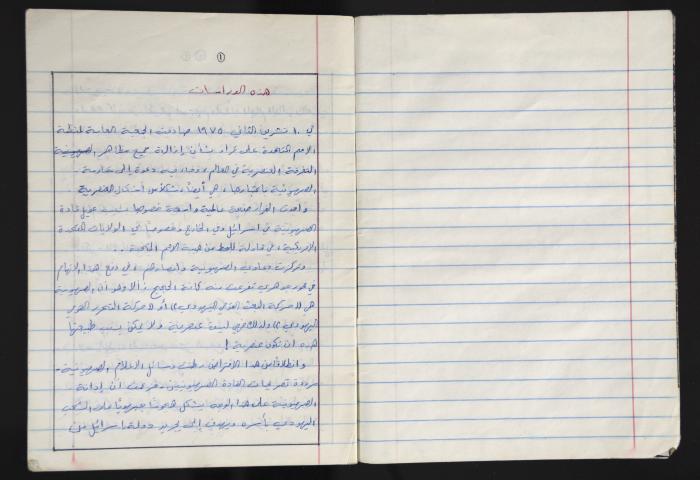 ①
هذه الدراسات
في ١٠ تشرين الثاني ١٩٧٥ صادقت الجمعية العامة لمنظمة
الامم المتحدة على قرار بشأن إزالة جميع مظاهر الصهيونية
التفرقة العنصرية في العالم، وفيه دعوة إلى مقاومة
الصهيونية باعتبارها، هي أيضاً، شكلاً من أشكال العنصرية
وأحدث القرار ضجة عالمية واسعة خصوصاً بسبب قادة
الصهيونية في اسرائيل وفي الخارج وخصوصاً في الولايات المتحدة
الامريكية في محاولة للحط من هيبة الامم المتحدة ..
وتركزت الصهيونية وانصارهم في دفع هذا الاتهام
في محور جوهري تفرعت منه كافة الحجج: الا وهو أن الصهيونية
هي (( حركة البعث القومي اليهودي )) أو (( حركة التحرر القومي
اليهودي )) ولذلك هي ليست عنصرية ولا يمكن بسبب طبيعتها
هذه ان تكون عنصرية !
وانطلاقاً من هذا الافتراض وسائل الاعلام الصهيونية -
مرددة تصريحات القادة الصهيونيين - فزعمت ان إدانة
الصهيونية على هذا الوجه يشكل هجوماً على الشعب
اليهودي بأسره ويهدف إلى تجريد دولة اسرائيل من